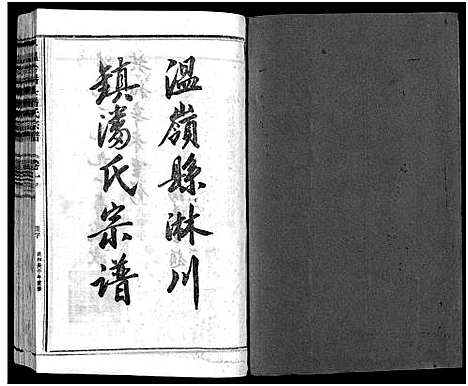 溫嶺縣淋川
鎮潘氏宗譜